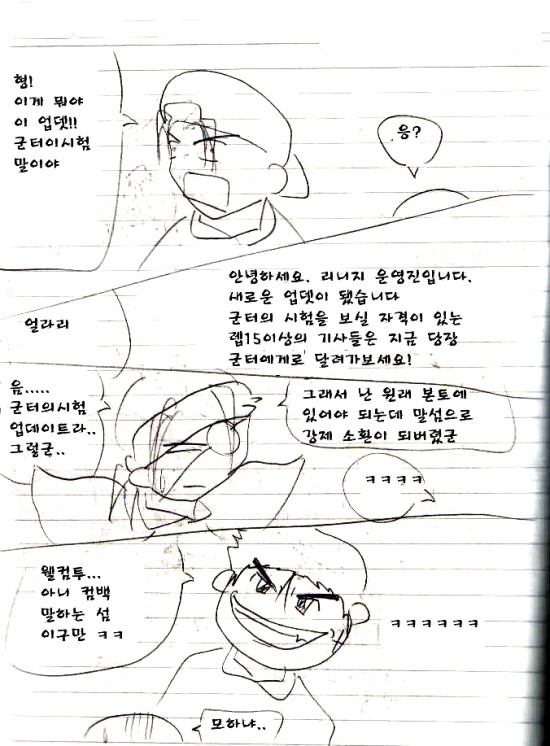 형!
이게 뭐야
이 업뎃!!
군터이시험
말이야
응?
안녕하세요. 리니지 운영진입니다.
새로운 업뎃이 됐습니다
군터의 시험을 보실 자격이 있는
렙15이상의 기사들은 지금 당장
군터에게로 달려가보세요!
얼라리
음.....
군터의시험
업데이트라..
그럴군..
그래서 난 원래 본토에
있어야 되는데 말섬으로
강제 소환이 되버렸군
ㅋㅋㅋㅋ
웰컴투...
아니 컴백
말하는 섬
이구만 ㅋㅋ
ㅋㅋㅋㅋㅋㅋ
모하냐..